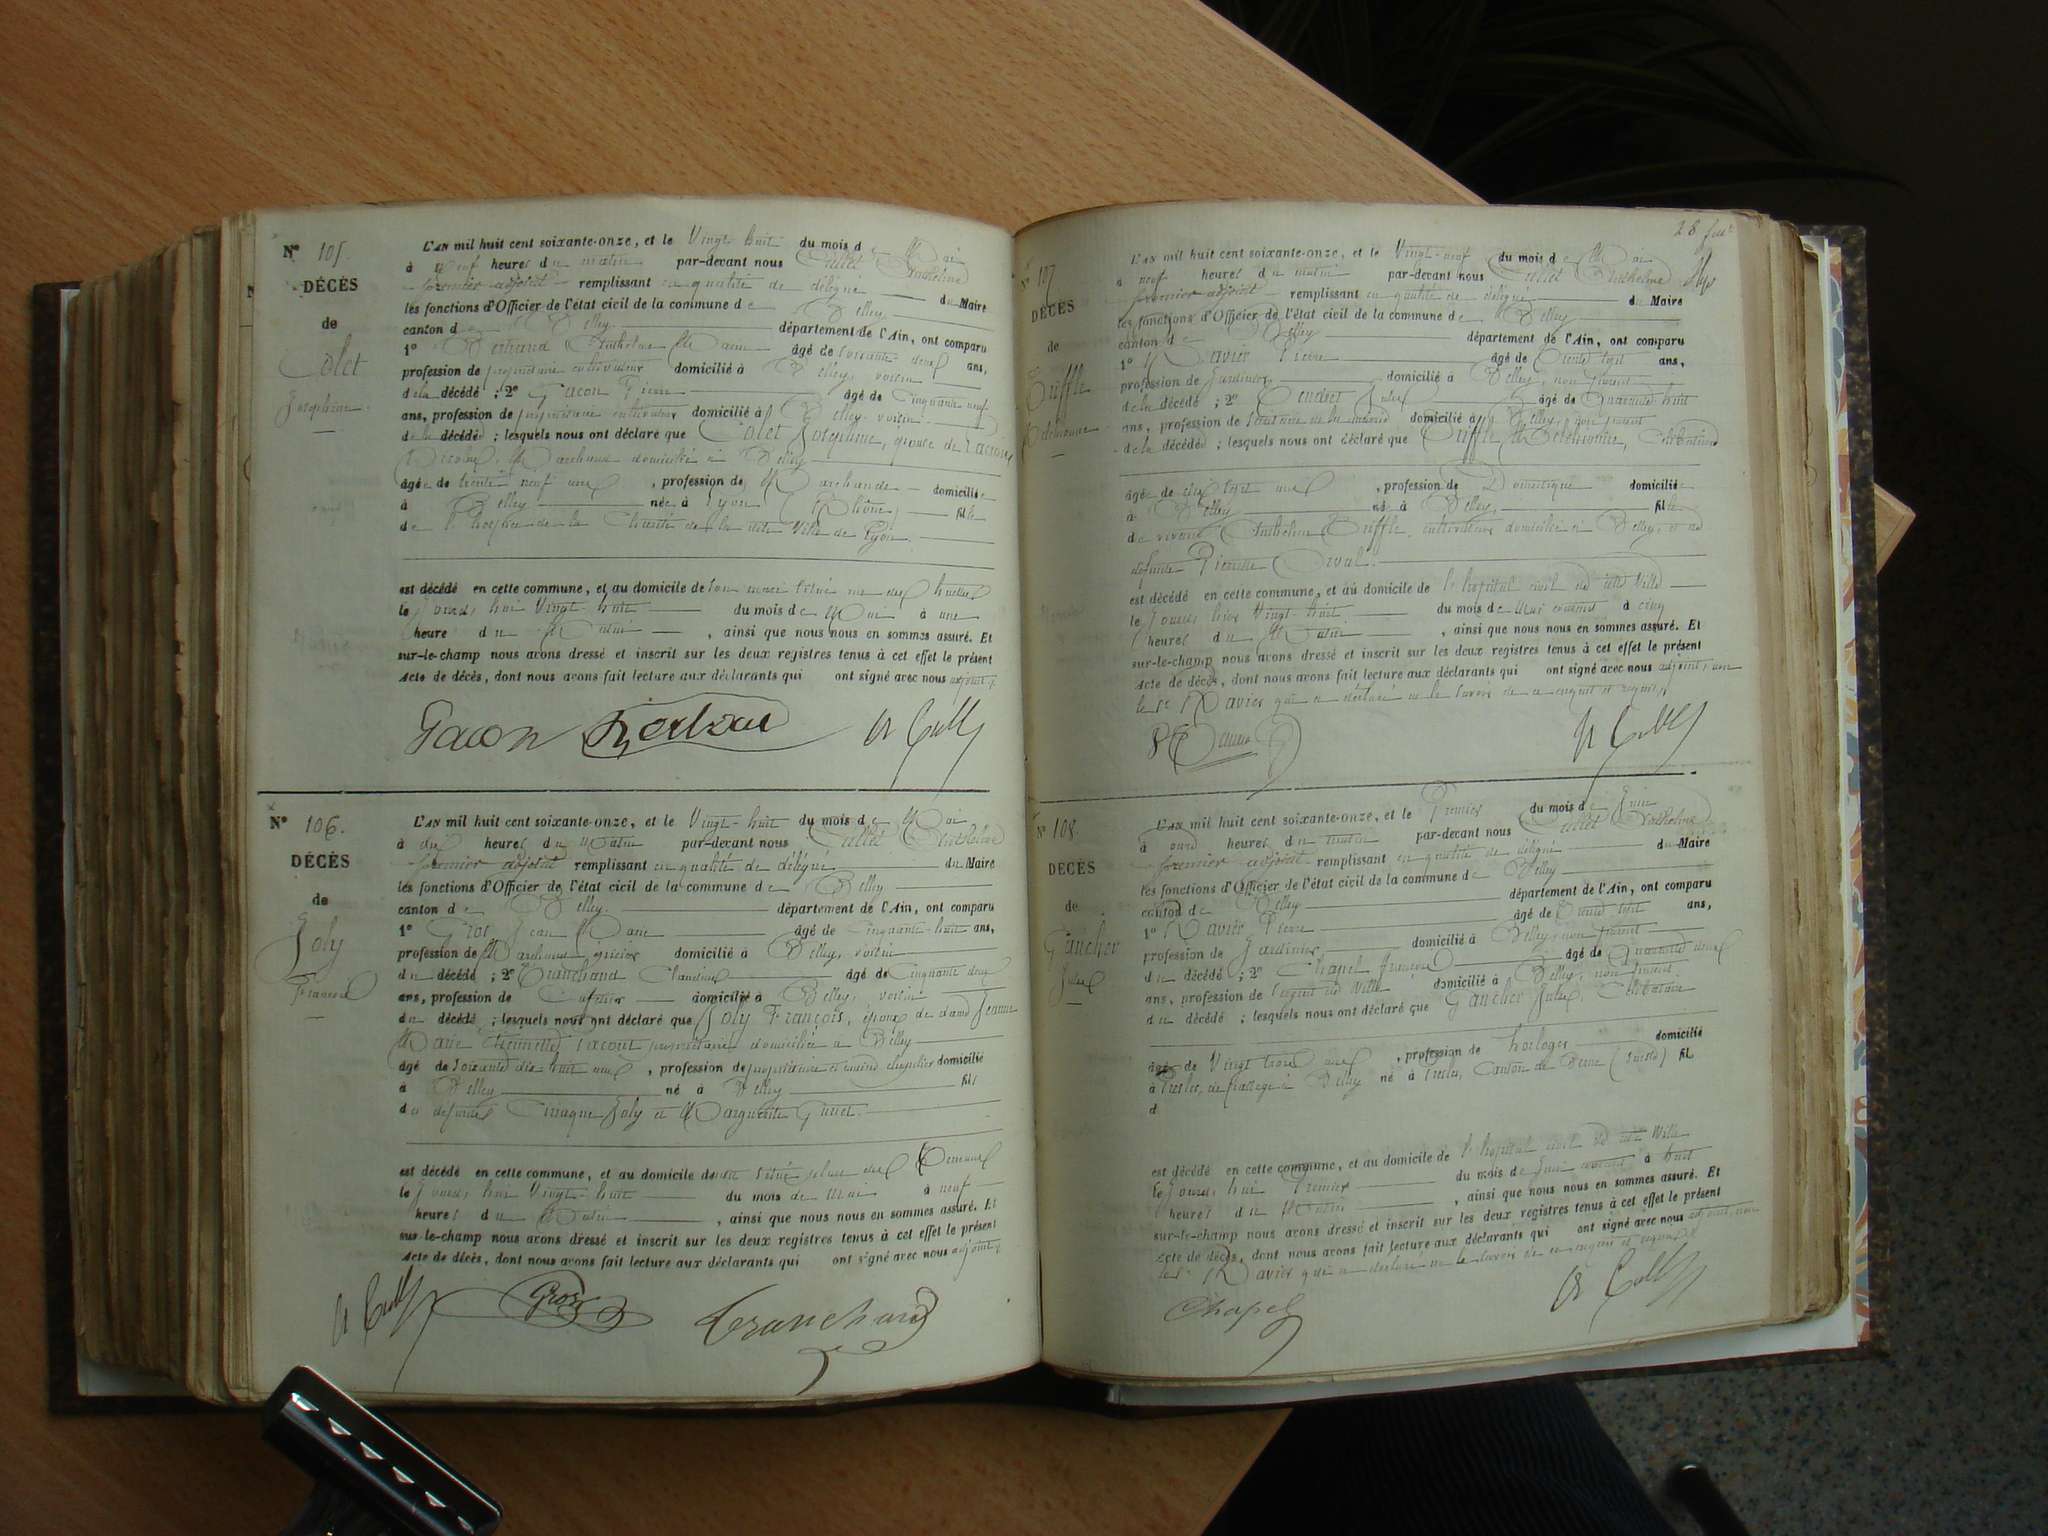 N° 105.
DÉCÈS
de
Colet
Joséphine
L'AN mil huit cent soixante-onze, et le Vingt-huit du mois de Mai
à neuf heures du matin par-devant nous Cullet Anthelme
premier adjoint remplissant en qualité de délégué du Maire
les fonctions d'Officier de l'état civil de la commune de Belley
canton de Belley département de l'Ain, ont comparu
1° Anthelme âgé de soixante-deux ans,
profession de propriétaire cultivateur domicilié à Belley, voisin
de la décédé ; 2° Gacon Pierre âgé de Cinquante neuf
ans, profession de propriétaire cultivateur domicilié à Belley voisin
de la décédé ; lesquels nous ont déclaré que Colet Joséphine, épouse de
Marchand domicilié à Belley
âgée de trente neuf ans, profession de Marchande domiciliée
à Belley née à Lyon (Rhône) fille
de l'hospice de la Charité de la dite Ville de Lyon.
est décédé en cette commune, et au domicile de son mari situé rue des
le Jourd'hui Vingt-huit du mois de Mai à une
heure du Matin, ainsi que nous nous en sommes assuré. Et
sur-le-champ nous avons dressé et inscrit sur les deux registres tenus à cet effet le présent
Acte de décès, dont nous avons fait lecture aux déclarants qui ont signé avec nous adjoint.
Gacon
N° 106.
DÉCÈS
de
Joly
François
L'AN mil huit cent soixante-onze, et le Vingt-huit du mois de Mai
à dix heures du Matin par-devant nous Cullet Anthelme
premier adjoint remplissant en qualité de délégué du Maire
les fonctions d'Officier de l'état civil de la commune de Belley
canton de Belley département de l'Ain, ont comparu
1° Gros Jean Marie âgé de Cinquante-huit ans,
profession de Marchand épicier domicilié à Belley, voisin
du décédé ; 2° Tranchand Claudius âgé de Cinquante deux
ans, profession de Cafetier domicilié à Belley, voisin
du décédé ; lesquels nous ont déclaré que Joly François, époux de dame Jeanne
Marie propriétaire domiciliée à Belley
âgé de soixante dix huit ans, profession de propriétaire et domicilié
à Belley né à Belley fils
de défunts Joly et Marguerite
est décédé en cette commune, et au domicile de situé place des Terreaux
le Jourd'hui Vingt-huit du mois de Mai à neuf
heures du Matin, ainsi que nous nous en sommes assuré. Et
sur-le-champ nous avons dressé et inscrit sur les deux registres tenus à cet effet le présent
Acte de décès, dont nous avons fait lecture aux déclarants qui ont signé avec nous adjoint.
Gros Tranchand
N° 107
DÉCÈS
de
Truffle
L'AN mil huit cent soixante-onze, et le Vingt-neuf du mois de Mai
à neuf heures du matin par-devant nous Cullet Anthelme
premier adjoint remplissant en qualité de délégué du Maire
les fonctions d'Officier de l'état civil de la commune de Belley
canton de Belley département de l'Ain, ont comparu
1° Ravier Pierre âgé de Trente sept ans,
profession de Jardinier domicilié à Belley, non parent
de la décédé ; 2° Jules âgé de Quarante huit
ans, profession de Secrétaire de la mairie domicilié à Belley, non parent
de la décédé ; lesquels nous ont déclaré que Truffle Célibataire
âgée de dix sept ans, profession de Domestique domiciliée
à Belley né à Belley, fille
de vivant Anthelme Truffle, cultivateur domicilié à Belley, et de
défunte Pierrette
est décédé en cette commune, et au domicile de l'hôpital civil de cette Ville
le Jourd'hier Vingt-huit du mois de Mai courant à cinq
heures du Matin, ainsi que nous nous en sommes assuré. Et
sur-le-champ nous avons dressé et inscrit sur les deux registres tenus à cet effet le présent
Acte de décès, dont nous avons fait lecture aux déclarants qui ont signé avec nous adjoint, non
le sr Ravier qui a déclaré ne le savoir de ce enquis et requis.
N° 108.
DÉCÈS
de
Gaucher
Jules
L'AN mil huit cent soixante-onze, et le Premier du mois de Juin
à onze heures du matin par-devant nous Cullet Anthelme
premier adjoint remplissant en qualité de délégué du Maire
les fonctions d'Officier de l'état civil de la commune de Belley
canton de Belley département de l'Ain, ont comparu
1° Ravier Pierre âgé de Trente sept ans,
profession de Jardinier domicilié à Belley, non parent
du décédé ; 2° Chapel François âgé de Quarante deux
ans, profession de Sergent de Ville domicilié à Belley, non parent
du décédé ; lesquels nous ont déclaré que Gaucher Jules, Célibataire
âgé de Vingt trois ans, profession de horloger domicilié
à de passage à Belley né à Canton de Berne (Suisse) fil
d
est décédé en cette commune, et au domicile de l'hôpital civil de cette Ville
le Jourd'hui Premier du mois de Juin courant à huit
heures du Matin, ainsi que nous nous en sommes assuré. Et
sur-le-champ nous avons dressé et inscrit sur les deux registres tenus à cet effet le présent
Acte de décès, dont nous avons fait lecture aux déclarants qui ont signé avec nous adjoint, non
le sr Ravier qui a déclaré ne le savoir de ce enquis et requis
Chapel